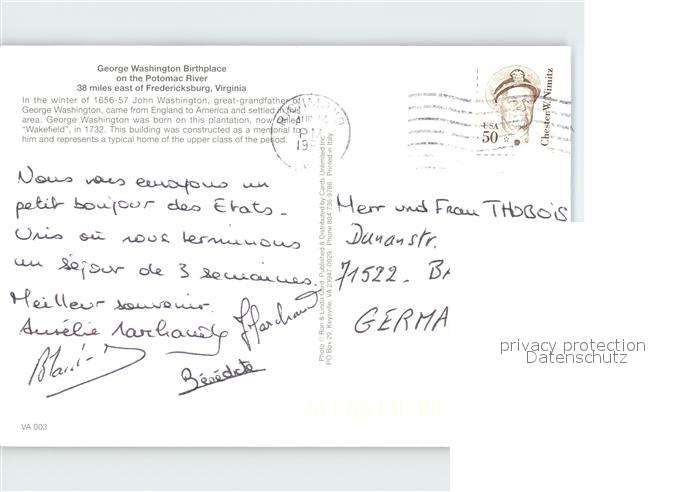 George Washington Birthplace
on the Potomac River
38 miles east of Fredericksburg, Virginia
In the winter of 1656-57 John Washington, great-grandfather of
George Washington, came from England to America and settled in this
area. George Washington was born on this plantation, now called
"Wakefield", in 1732. This building was constructed as a memorial to
him and represents a typical home of the upper class of the period.
PM
19
USA
50
Chester W. Nimitz
Nous vous envoyons un
petit bonjour des Etats-
Unis où nous terminons
un séjour de 3 semaines.
Meilleur souvenir.
Aurélie Marchand
Bénédicte
VA 003
Photo © Ron & Linda Card Published & Distributed by Cards Unlimited Inc.
PO Box 29, Keysville, VA 23947-0029 Phone 804-736-9786 Printed in Italy
Herr und Frau THOBOIS
Dunanstr.
71522. BA
GERMA
privacy protection
Datenschutz